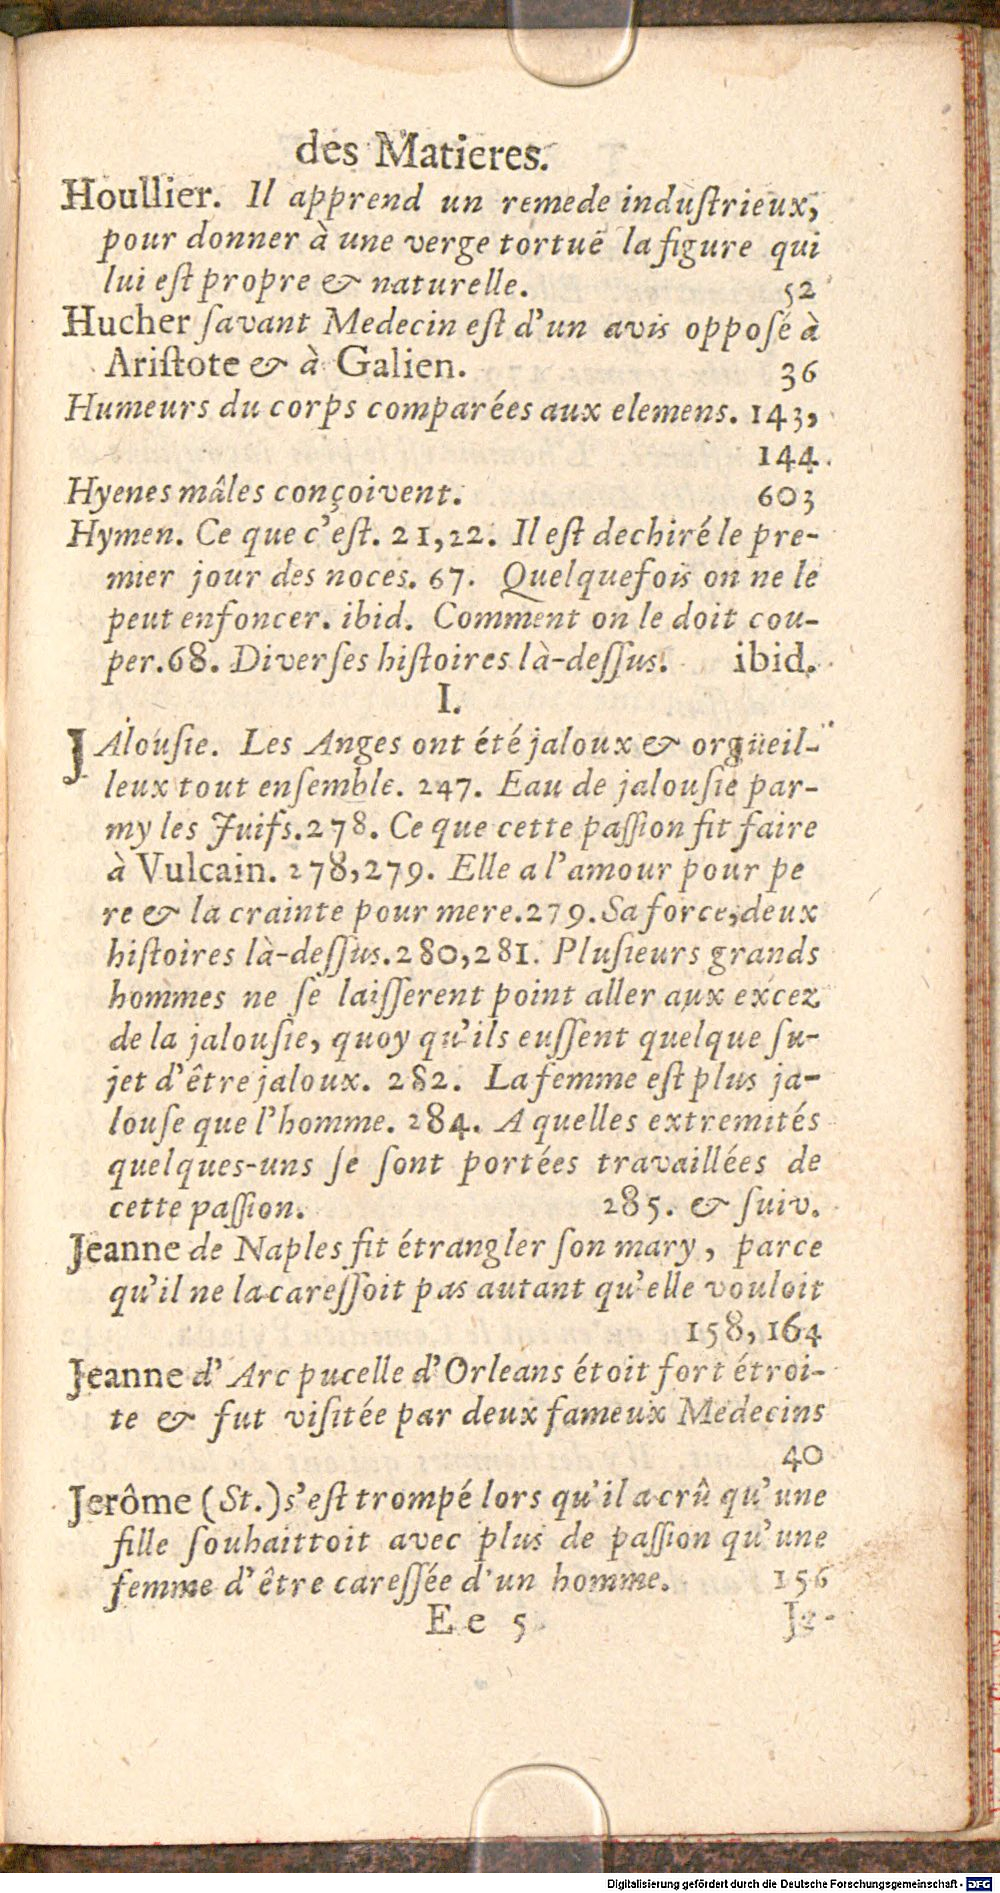 des Matieres.
Houllier. Il apprend un remede induſtrieux,
pour donner à une verge tortuë la figure qui
lui eſt propre & naturelle. 52
Hucher ſavant Medecin eſt d'un avis oppoſé à
Ariſtote & à Galien. 36
Humeurs du corps comparées aux elemens. 143,
144.
Hyenes mâles conçoivent. 603
Hymen. Ce que c'eſt. 21,22. Il eſt dechiré le pre-
mier jour des noces. 67. Quelquefois on ne le
peut enfoncer. ibid. Comment on le doit cou-
per.68. Diverſes hiſtoires là-deſſus. ibid.
I.
JAlouſie. Les Anges ont été jaloux & orgüeil-
leux tout enſemble. 247. Eau de jalouſie par-
my les Juifs.278. Ce que cette paſſion fit faire
à Vulcain. 278,279. Elle a l'amour pour pe
re & la crainte pour mere.279.Sa force,deux
hiſtoires là-deſſus.280,281. Pluſieurs grands
hommes ne ſe laiſſerent point aller aux excez
de la jalouſie, quoy qu'ils euſſent quelque ſu-
jet d'être jaloux. 282. La femme eſt plus ja-
louſe que l'homme. 284. A quelles extremités
quelques-uns ſe ſont portées travaillées de
cette paſſion. 285. & ſuiv.
Jeanne de Naples fit étrangler ſon mary, parce
qu'il ne la careſſoit pas autant qu'elle vouloit
158,164
Jeanne d'Arc pucelle d'Orleans étoit fort étroi-
te & fut viſitée par deux fameux Medecins
40
Jerôme (St.) s'eſt trompé lors qu'il a crû qu'une
fille ſouhaittoit avec plus de paſſion qu'une
femme d'être careſſée d'un homme. 156
E e 5 Je-
Digitalisierung gefördert durch die Deutsche Forschungsgemeinschaft - DFG